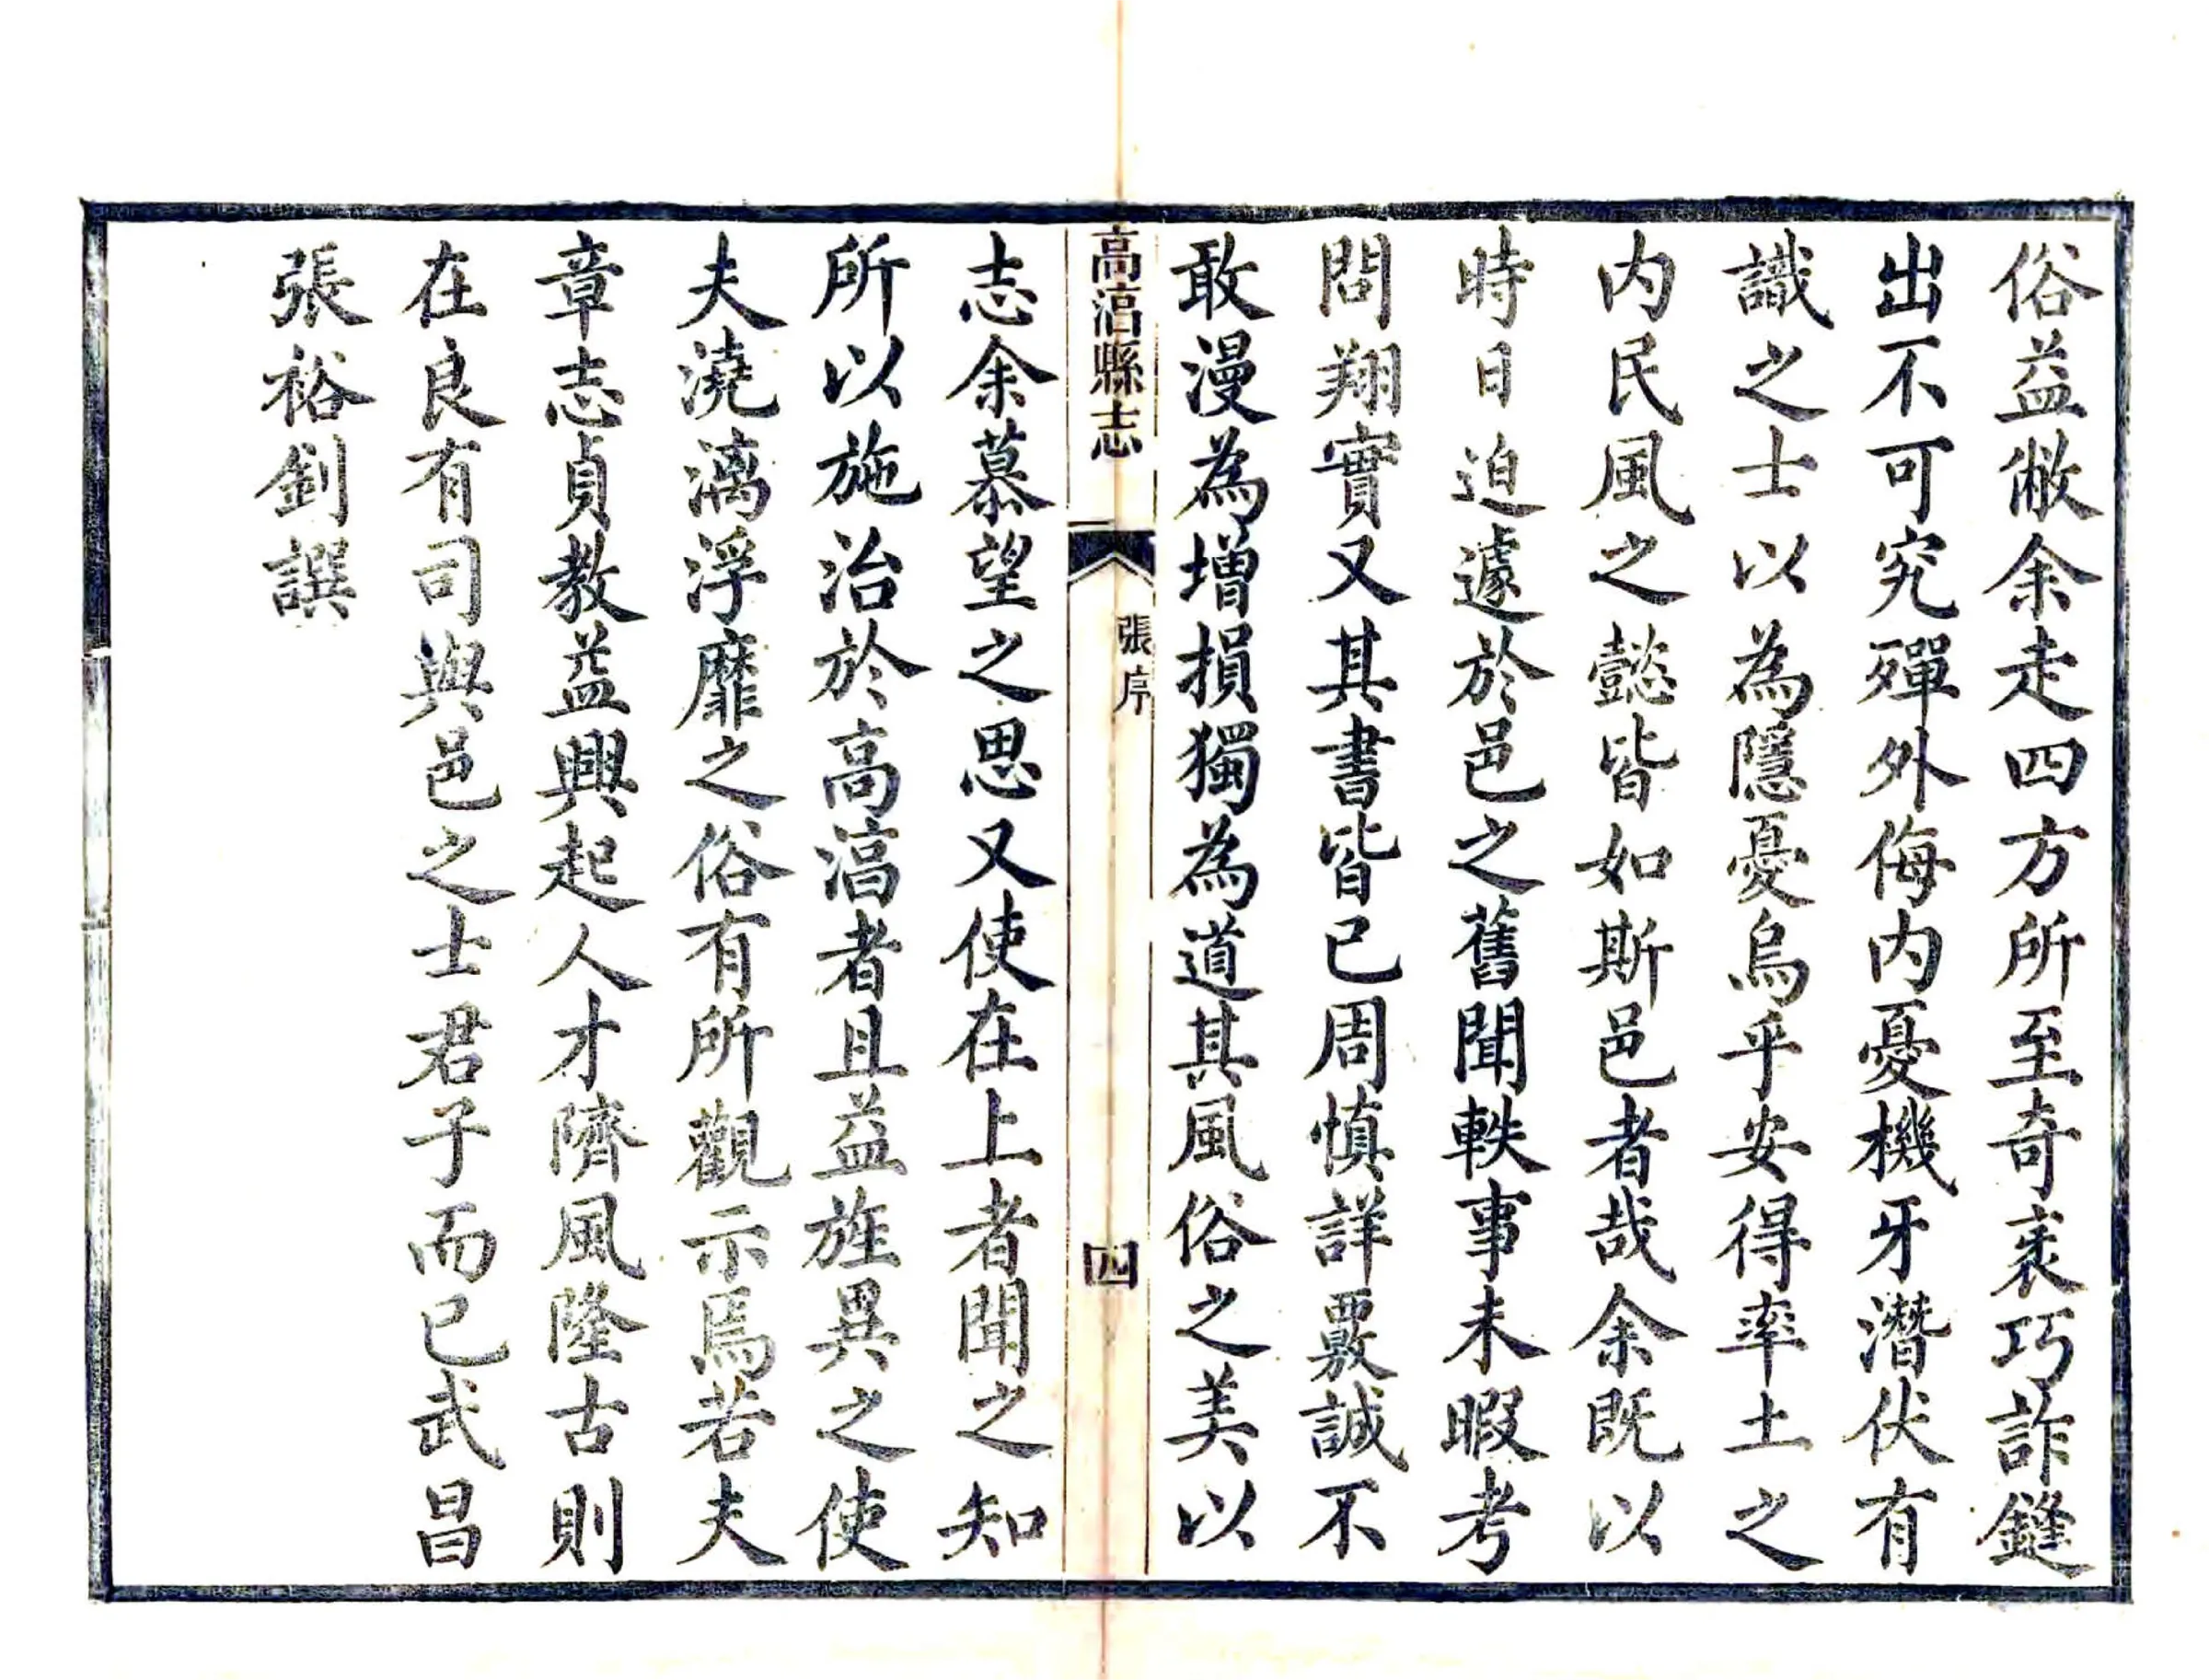 俗益敝余走四方所至奇衺巧詐鏠
出不可究殫外侮内憂機牙潛伏有
識之士以為隱憂烏乎安得率土之
内民風之懿皆如斯邑者哉余既以
時日迫遽於邑之舊聞軼事未暇考
問翔實又其書皆已周慎詳覈誠不
敢漫為增損獨為道其風俗之美以
高淳縣志
張序
四
志余慕望之思又使在上者聞之知
所以施治於高淳者且益旌異之使
夫澆漓浮靡之俗有所觀示焉若夫
章志貞教益興起人才隮風隆古則
在良有司與邑之士君子而已武昌
張裕釗譔